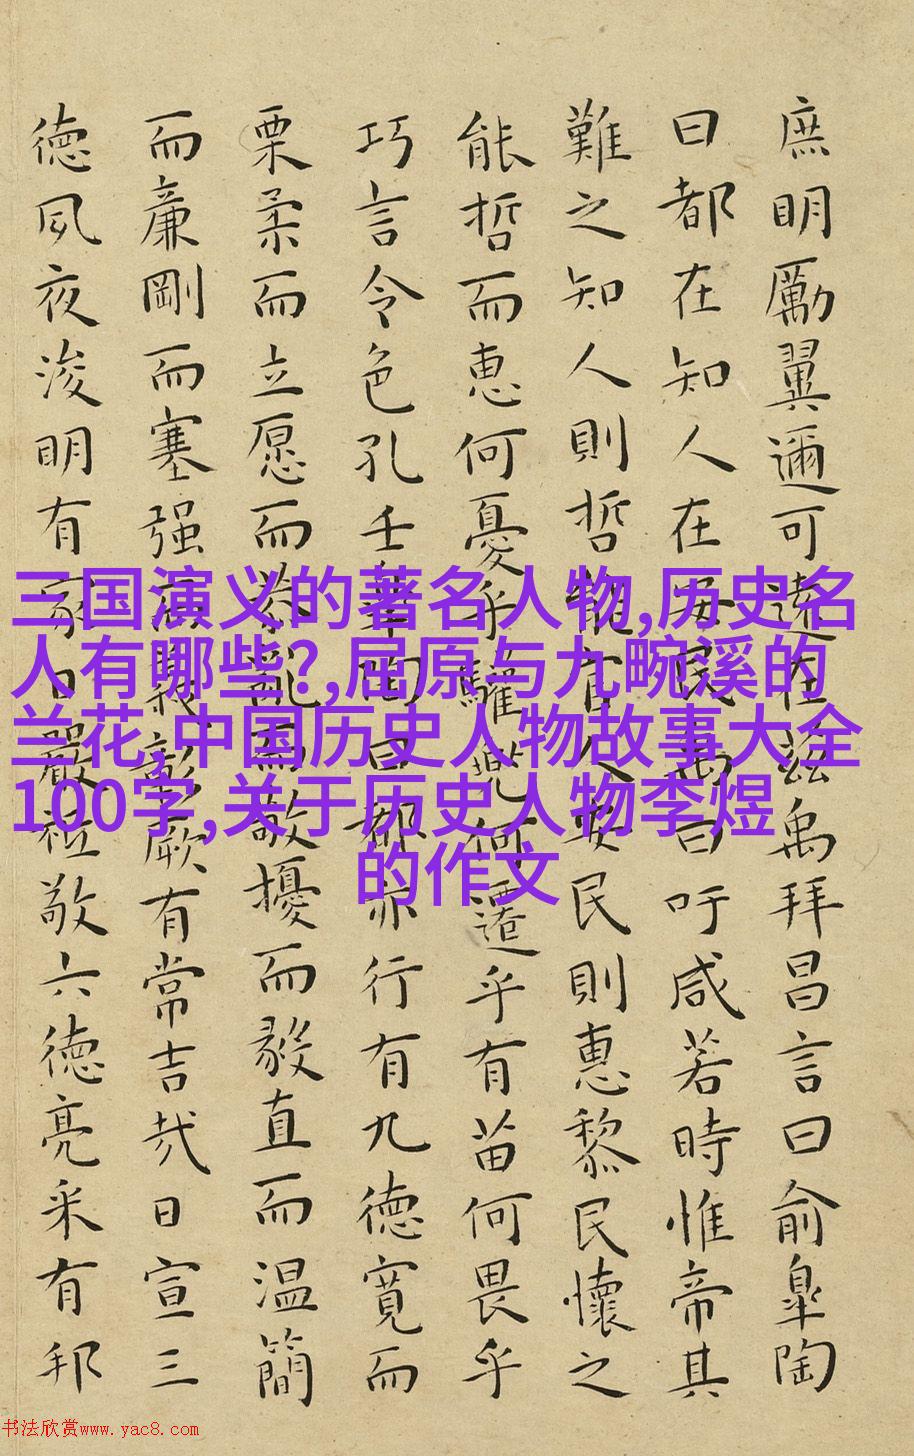 庶明厲翼邇可遠在茲禹拜昌言曰俞皐陶
曰都在知人在安民禹曰吁咸若時惟帝其
難之知人則哲能官人安民則惠黎民懷之
能哲而惠何憂乎驩兜何遷乎有苗何畏乎
巧言令色孔壬皐陶曰都亦行有九德寬而
栗柔而立愿而恭亂而敬擾而毅直而温簡
而廉剛而塞强而義彰厥有常吉哉日宣三
德夙夜浚明有家日嚴祗敬六德亮采有邦
三国演义的著名人物,历史名
人有哪些?,屈原与九畹溪的
兰花,中国历史人物故事大全
100字,关于历史人物李煜
的作文
书法欣赏www.yac8.com